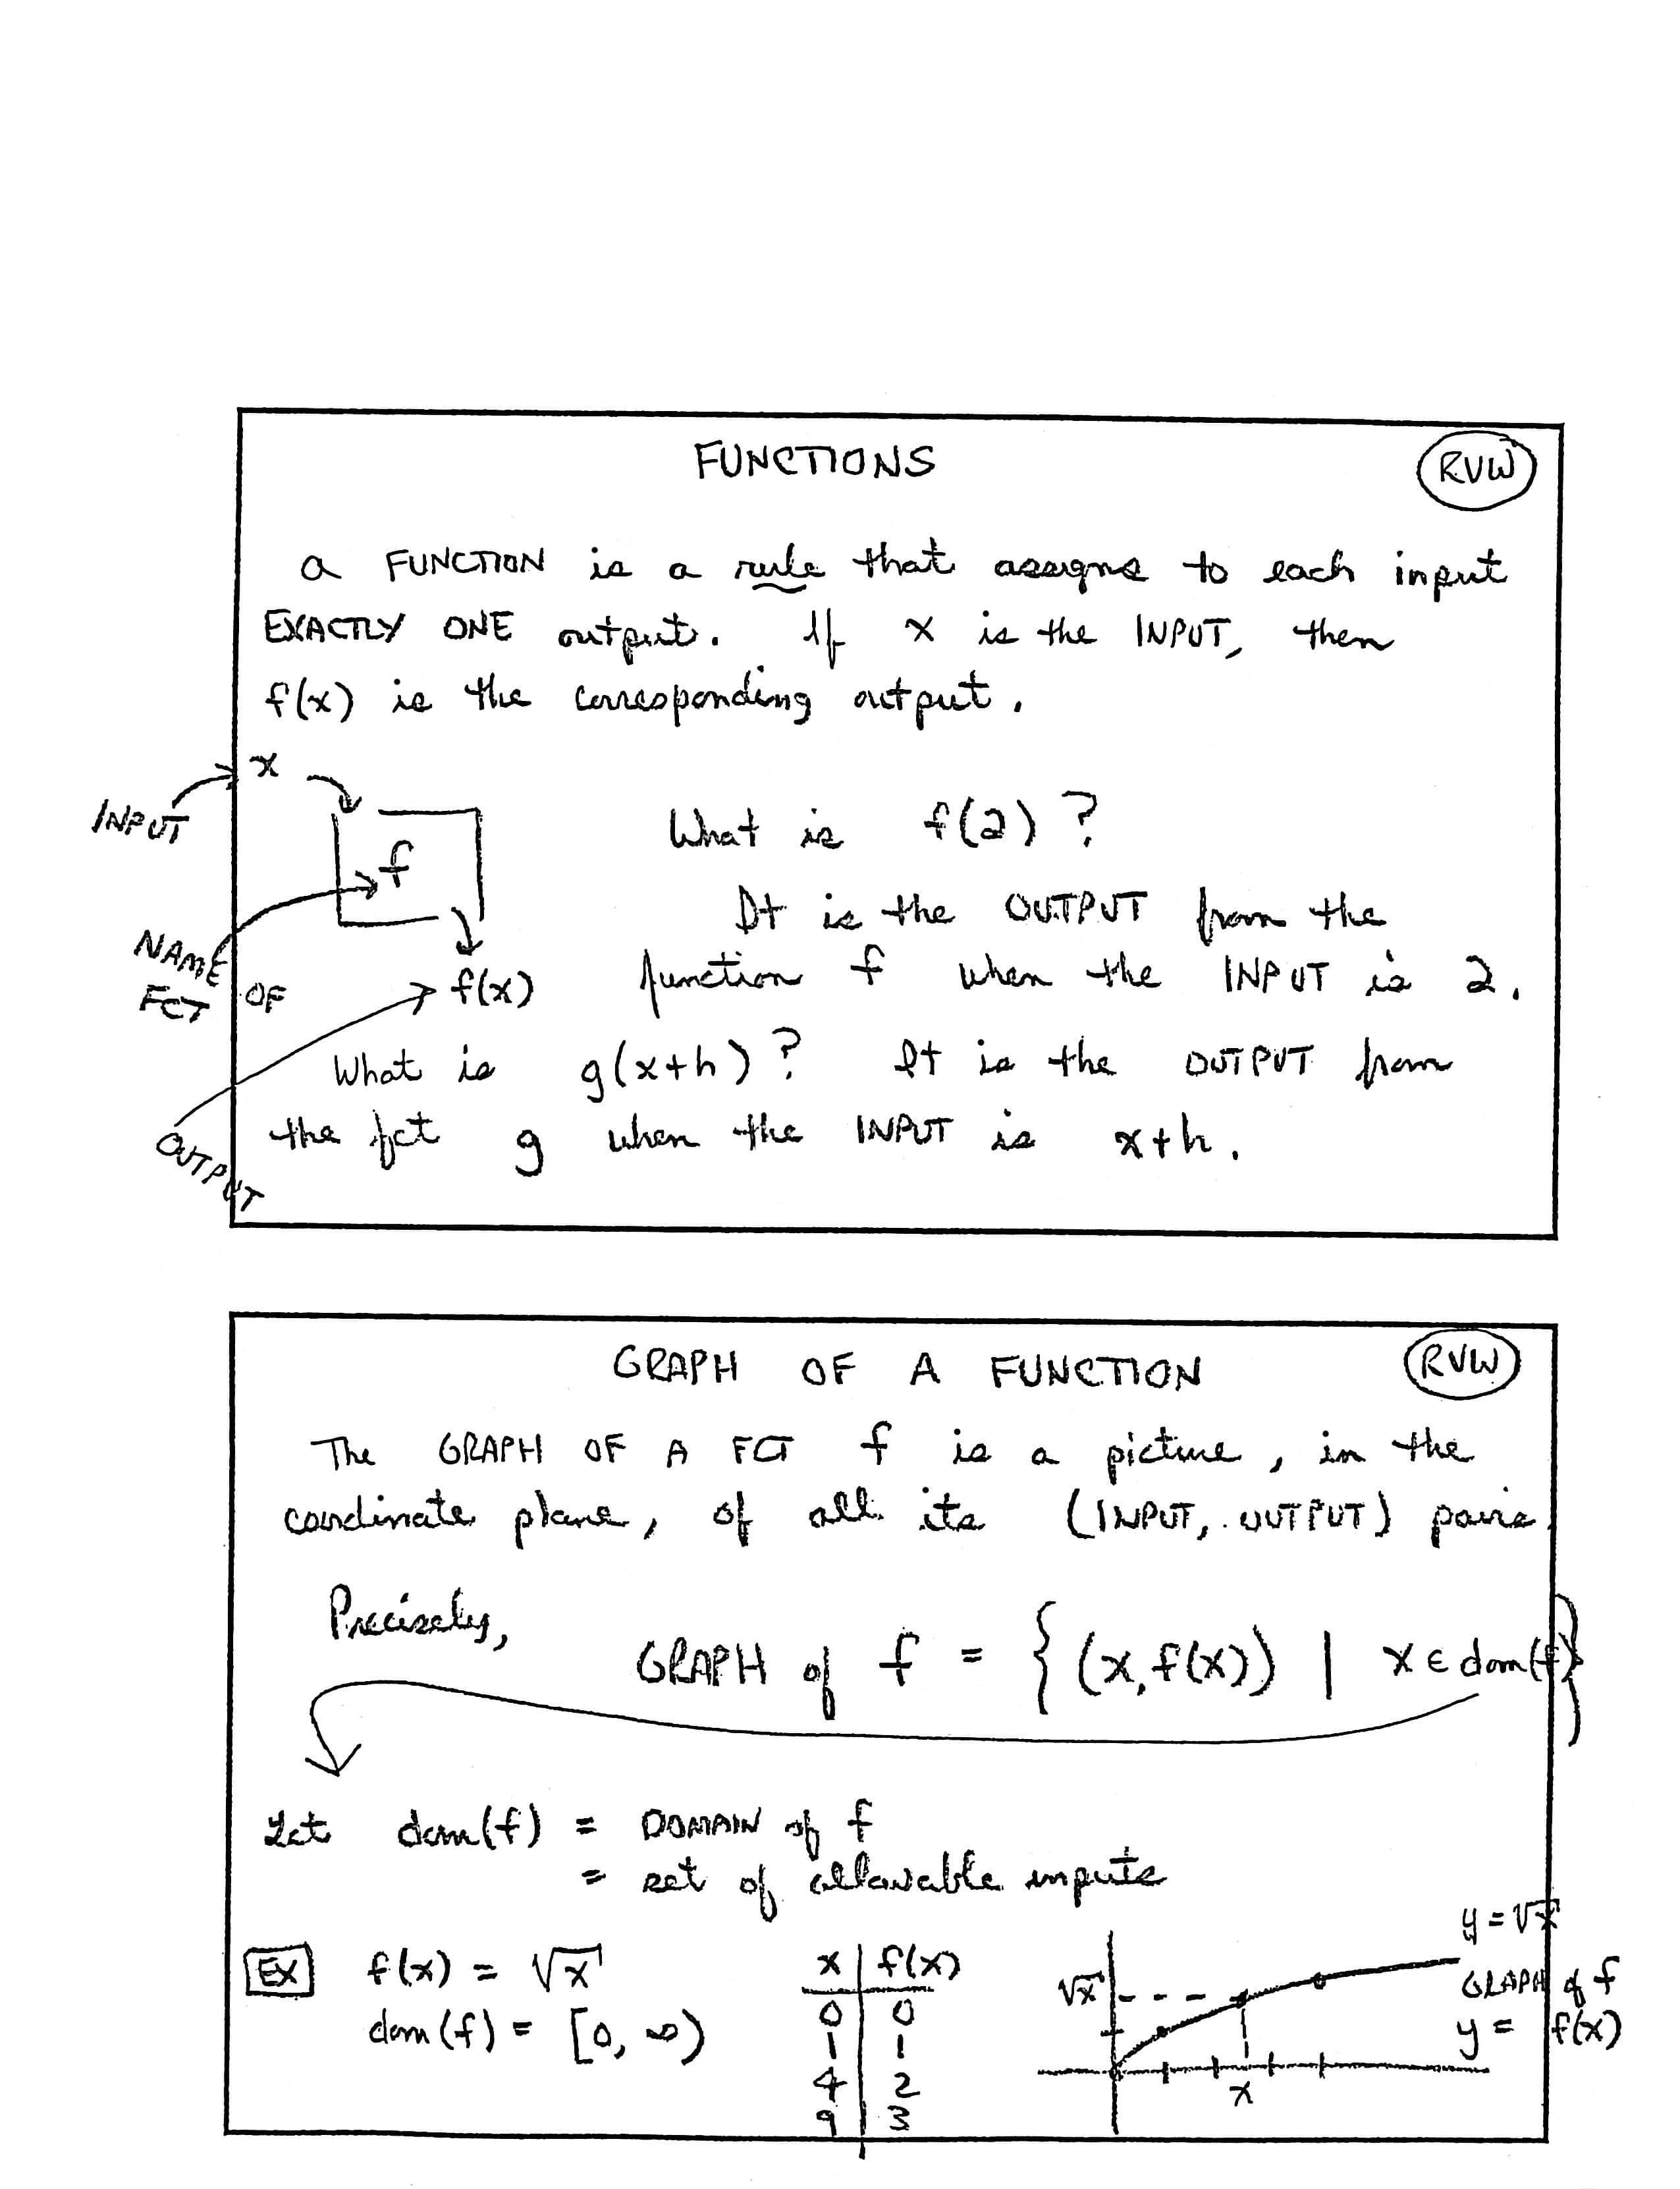 FUNCTIONS
RVW
A FUNCTION is a rule that assigns to each input
EXACTLY ONE output. If x is the INPUT, then
f(x) is the corresponding output.
x
INPUT
f
What is f(2)?
It is the OUTPUT from the
NAME OF
FCT
f(x)
function f when the INPUT is 2.
What is g(x+h)? It is the OUTPUT from
the fct g when the INPUT is x+h.
OUTPUT
GRAPH OF A FUNCTION
RVW
The GRAPH OF A FCT f is a picture, in the
coordinate plane, of all its (INPUT, OUTPUT) pairs.
Precisely,
GRAPH of f = { (x, f(x)) | x ∈ dom(f) }
Let dom(f) = DOMAIN of f
= set of allowable inputs
EX f(x) = √x
dom(f) = [0, ∞)
x f(x)
0 0
1 1
4 2
9 3
y = √x
√x
GRAPH of f
y = f(x)
x